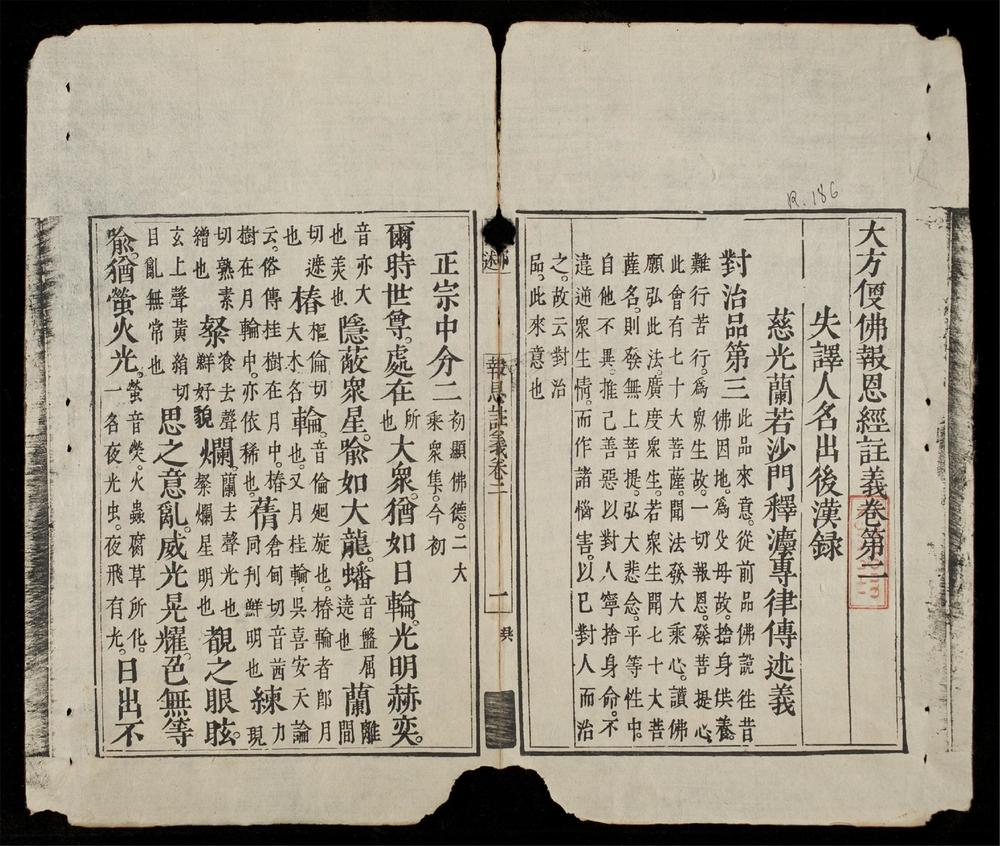 大方便佛報恩經註義卷第二
失譯人名出後漢録
慈光蘭若沙門釋灋專律傳述義
對治品第三此品來意。從前品佛說往昔
佛因地。爲父母故。捨身供養。
難行苦行。爲眾生故。一切報恩。發菩提心
此會有七十大菩薩。聞法發大乘心。讚佛
願弘此法。廣度衆生。若衆生開七十大菩
薩名。則發無上菩提。弘大悲念。平等性中。
自他不異。推己善惡以對人。寧捨身命。不
違逆衆生情。而作諸惱害。以己對人而治
之。故云對治
品。此來意也
報恩註義卷二 一
正宗中分二初顯佛德。二大乘衆集。今初
爾時世尊。處在所也大衆。猶如日輪。光明赫奕。
音亦大也美也隱蔽衆星。喻如大龍。蟠音盤屈遶也蘭離間
切遮也椿樞倫切大木名輪。音倫廻旋也。椿輪者卽月也。又月桂輪吳喜安天論
云。俗傳桂樹在月中。椿樹在月輪中。亦依稀也。蒨倉甸切音茜同利鮮明也練力現
切熟素繒也粲餐去聲鮮好貌爛。蘭去聲光也粲爛星明也覩之眼眩。
玄上聲黄絹切目亂無常也思之意亂。威光晃耀。色無等
喻。猶螢火光。螢音熒。火蟲腐草所化。一名夜光虫。夜飛有光。日出不
R.186